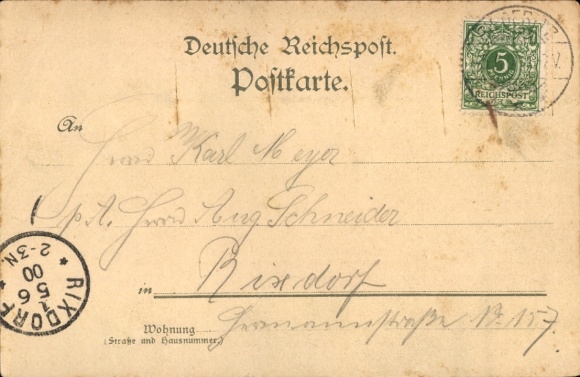 Deutsche Reichspost.
Postkarte.
5
REICHSPOST
An
Herrn Karl Meyer
p. A. Herrn Aug. Schneider
in Rixdorf
Wohnung
(Straße und Hausnummer.)
Hermannstraße No 157
RIXDORF
6
5
00
2-3N.